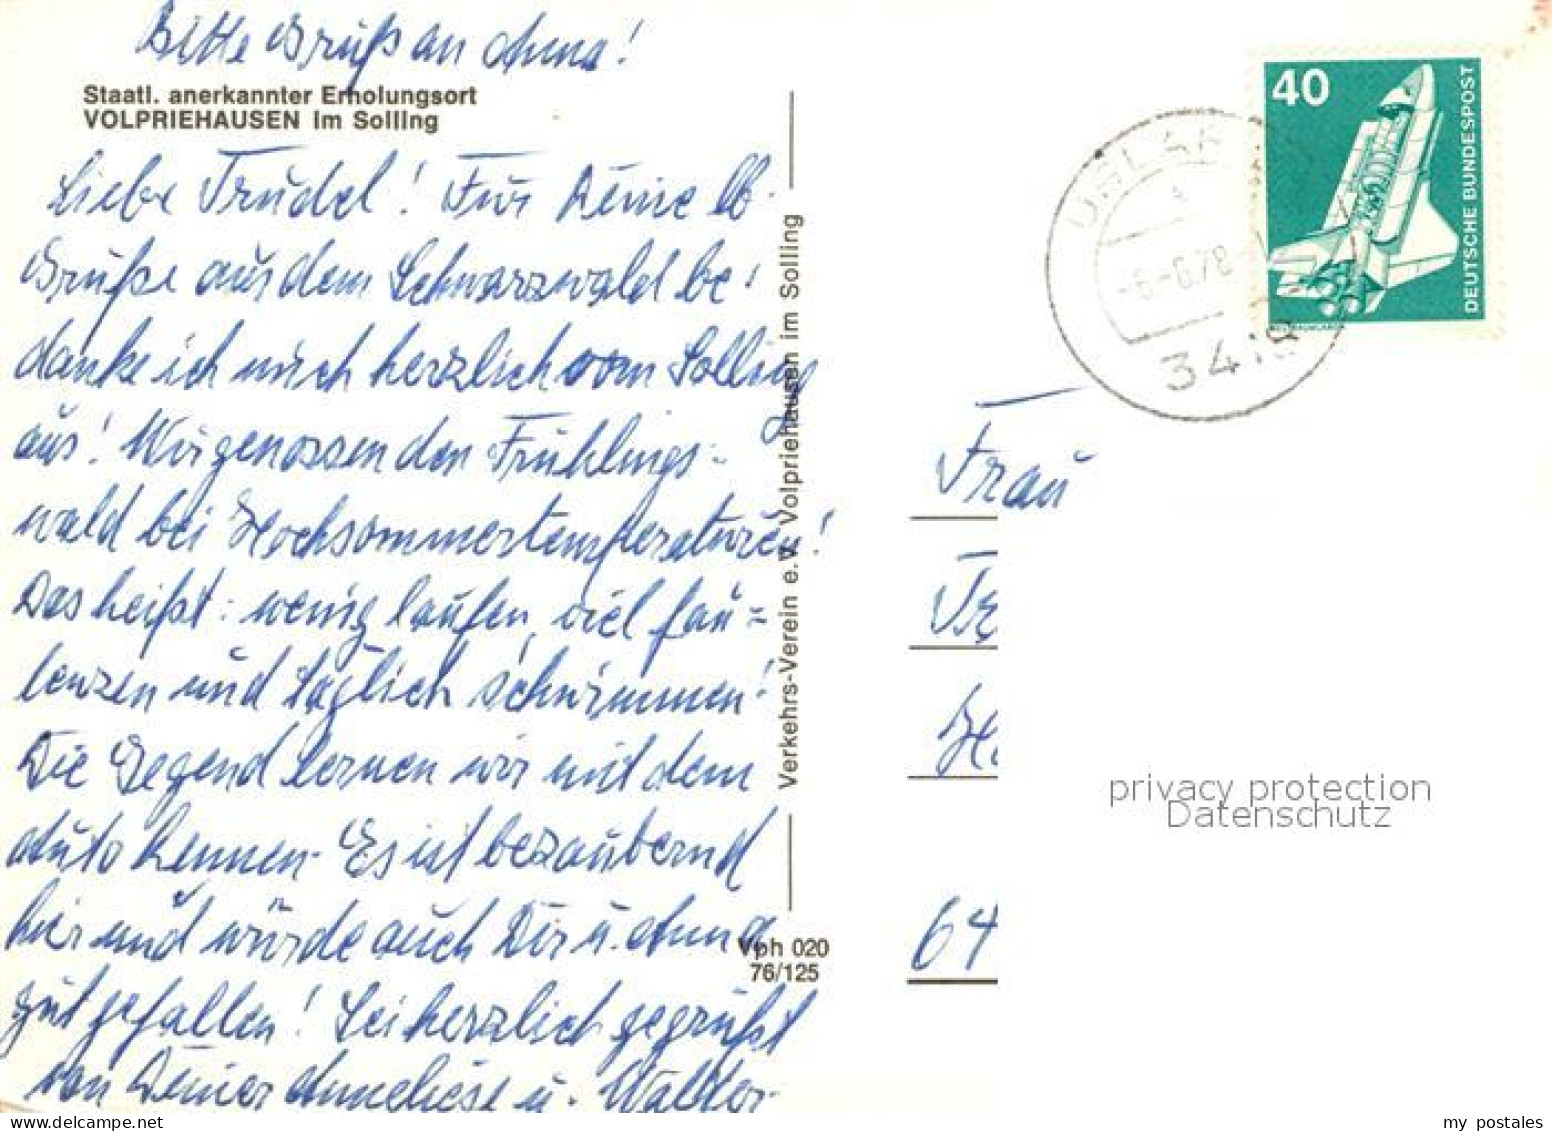 Bitte Gruß an Anna!
Staatl. anerkannter Erholungsort
VOLPRIEHAUSEN im Solling
Liebe Trudel! Für Deine lb.
Grüße aus dem Schwarzwald be-
danke ich mich herzlich vom Solling
aus! Wir genossen den Frühlings-
wald bei Hochsommertemperaturen!
Das heißt: wenig laufen, viel fau=
lenzen und täglich schwimmen!
Die Gegend lernen wir mit dem
Auto kennen. Es ist bezaubernd
hier und würde auch Dir u. Anna
gut gefallen! Sei herzlich gegrüßt
von Deiner Anneliese u. Walter
Verkehrs-Verein e.V. Volpriehausen im Solling
Vph 020
76/125
40
DEUTSCHE BUNDESPOST
USLAR
-6.-6.78-
3418
Frau
64
privacy protection
Datenschutz
my postales